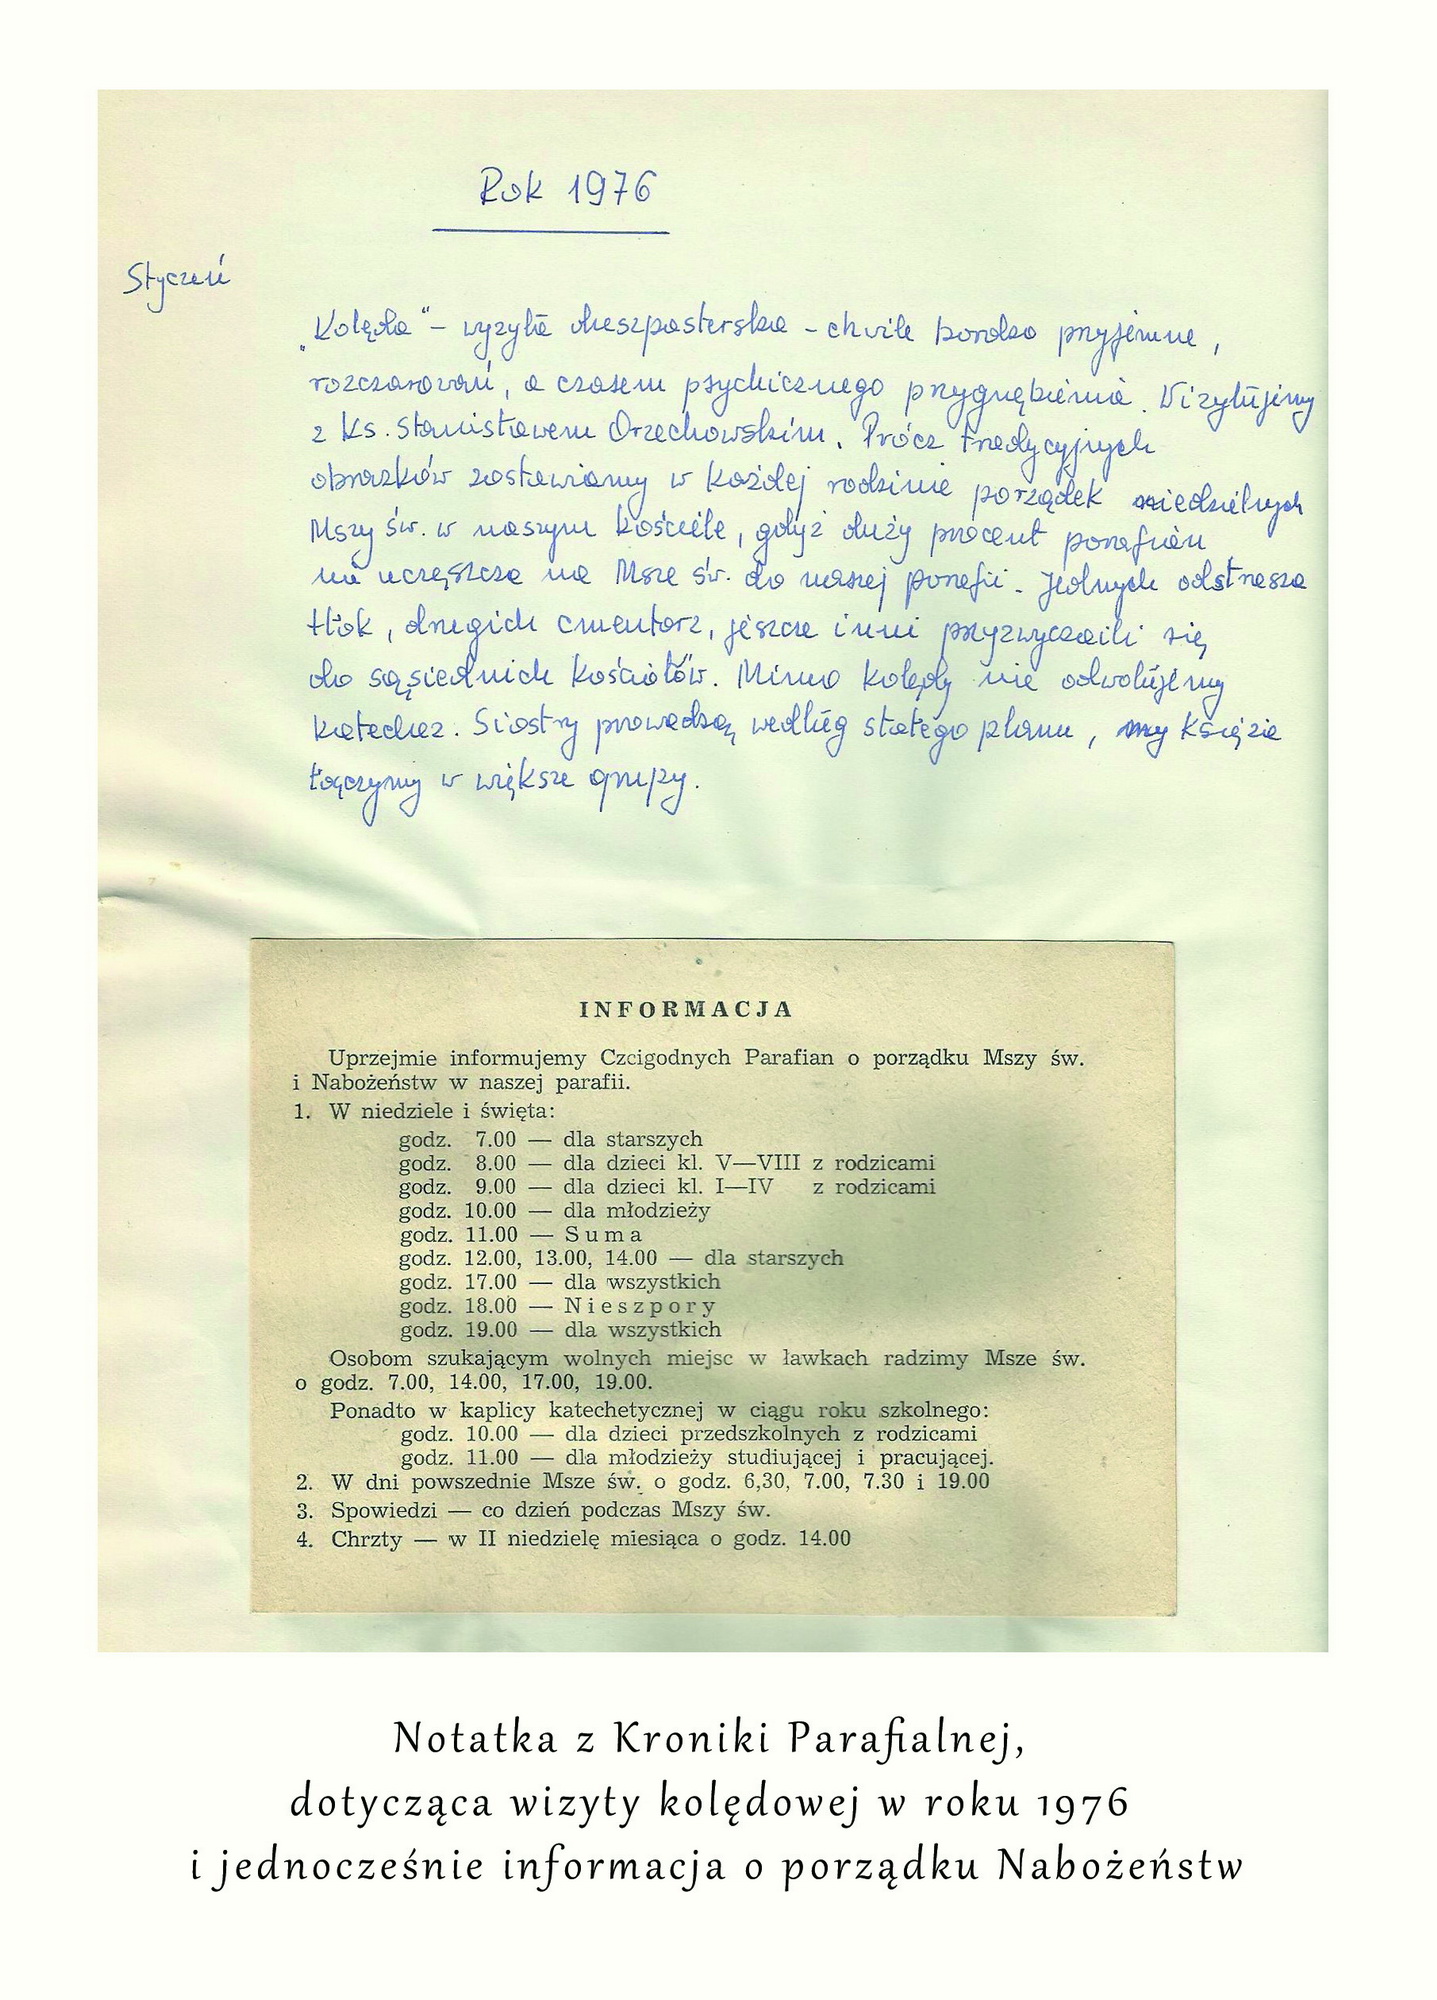 Rok 1976
Styczeń
„Kolęda" – wizyta duszpasterska – chwile bardzo przyjemne,
rozczarowań, a czasem psychicznego przygnębienia. Wizytujemy
z ks. Stanisławem Orzechowskim. Prócz tradycyjnych
obrazków zostawiamy w każdej rodzinie porządek niedzielnych
Mszy św. w naszym kościele, gdyż duży procent parafian
nie uczęszcza na Msze św. do naszej parafii. Jednych odstrasza
tłok, drugich cmentarz, jeszcze inni przyzwyczaili się
do sąsiednich kościołów. Mimo kolędy nie odwołujemy
katechez. Siostry prowadzą według stałego planu, my księża
łączymy w większe grupy.
INFORMACJA
Uprzejmie informujemy Czcigodnych Parafian o porządku Mszy św.
i Nabożeństw w naszej parafii.
1. W niedziele i święta:
godz. 7.00 — dla starszych
godz. 8.00 — dla dzieci kl. V—VIII z rodzicami
godz. 9.00 — dla dzieci kl. I—IV z rodzicami
godz. 10.00 — dla młodzieży
godz. 11.00 — Suma
godz. 12.00, 13.00, 14.00 — dla starszych
godz. 17.00 — dla wszystkich
godz. 18.00 — Nieszpory
godz. 19.00 — dla wszystkich
Osobom szukającym wolnych miejsc w ławkach radzimy Msze św.
o godz. 7.00, 14.00, 17.00, 19.00.
Ponadto w kaplicy katechetycznej w ciągu roku szkolnego:
godz. 10.00 — dla dzieci przedszkolnych z rodzicami
godz. 11.00 — dla młodzieży studiującej i pracującej.
2. W dni powszednie Msze św. o godz. 6,30, 7.00, 7.30 i 19.00
3. Spowiedzi — co dzień podczas Mszy św.
4. Chrzty — w II niedzielę miesiąca o godz. 14.00
Notatka z Kroniki Parafialnej,
dotycząca wizyty kolędowej w roku 1976
i jednocześnie informacja o porządku Nabożeństw